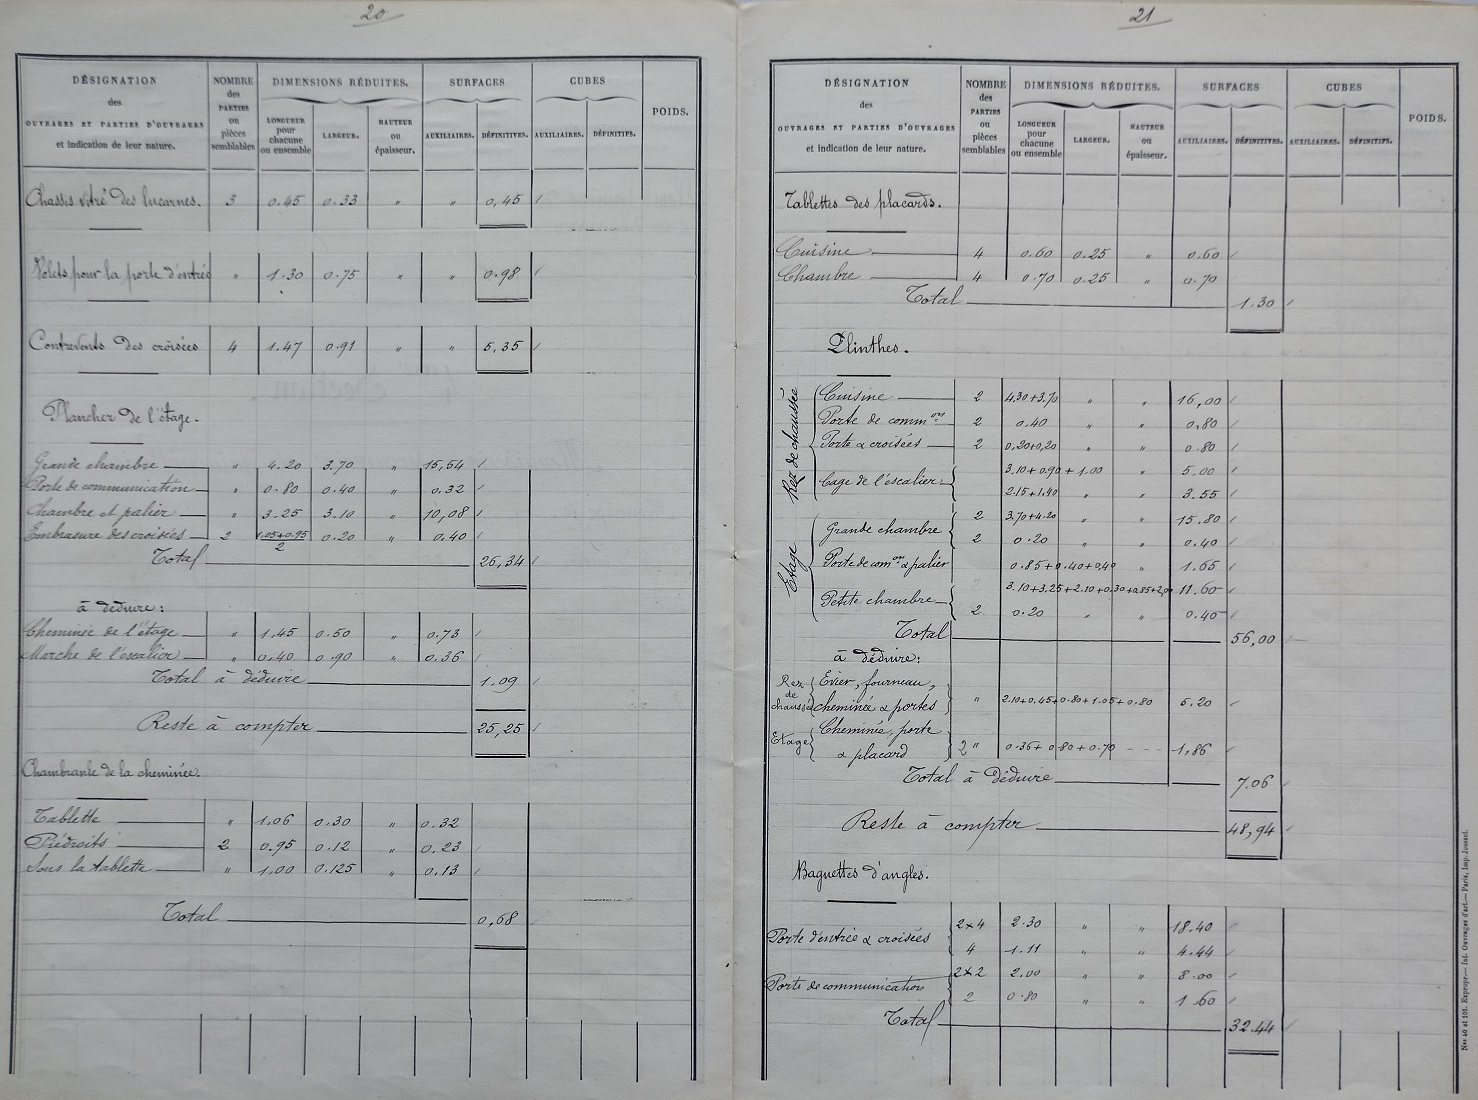 20
DÉSIGNATION des OUVRAGES ET PARTIES D'OUVRAGES et indication de leur nature. NOMBRE des PARTIES ou pièces semblables DIMENSIONS RÉDUITES. LONGUEUR pour chacune ou ensemble LARGEUR. HAUTEUR ou épaisseur. SURFACES AUXILIAIRES. DÉFINITIVES. CUBES AUXILIAIRES. DÉFINITIFS. POIDS.
Chassis vitré des lucarnes. 3 0.45 0.33 " " 0,45 /
Volets pour la porte d'entrée " 1.30 0.75 " " 0.98 /
Contrevents des croisées 4 1.47 0.91 " " 5,35 /
Plancher de l'étage.
Grande chambre " 4.20 3.70 " 15,54 /
Porte de communication " 0.80 0.40 " 0.32 /
Chambre et palier " 3.25 3.10 " 10,08 /
Embrasure des croisées 2 1.05+0.95/2 0.20 " 0.40 /
Total 26,34 /
à déduire:
Cheminée de l'étage " 1.45 0.50 " 0.73 /
Marche de l'escalier " 0.40 0.90 " 0.36 /
Total à déduire 1.09 /
Reste à compter 25,25 /
Chambranle de la cheminée.
Tablette " 1.06 0.30 " 0.32
Piédroits 2 0.95 0.12 " 0.23 /
Sous la tablette " 1.00 0.125 " 0.13 /
Total 0,68 /
21
DÉSIGNATION des OUVRAGES ET PARTIES D'OUVRAGES et indication de leur nature. NOMBRE des PARTIES ou pièces semblables DIMENSIONS RÉDUITES. LONGUEUR pour chacune ou ensemble LARGEUR. HAUTEUR ou épaisseur. SURFACES AUXILIAIRES. DÉFINITIVES. CUBES AUXILIAIRES. DÉFINITIFS. POIDS.
Tablettes des placards.
Cuisine 4 0.60 0.25 " 0.60 /
Chambre 4 0.70 0.25 " 0.70
Total 1.30 /
Plinthes.
Rez de chaussée
Cuisine 2 4.30+3.70 " " 16,00 /
Porte de common 2 0.40 " " 0,80 /
Porte & croisées 2 0,20+0,20 " " 0.80 /
Cage de l'escalier 3.10+0.90+1.00 " 5.00 /
2.15+1.40 " " 3.55 /
Etage
Grande chambre 2 3.70+4.20 " " 15.80 /
2 0.20 " " 0.40 /
Porte de comon & palier 0.85+0.40+0.40 " 1.65 /
Petite chambre 3.10+3.25+2.10+0.30+0.85+2.00 11.60 /
2 0.20 " " 0.40 /
Total 56,00
à déduire:
Rez de chaussée Evier, fourneau,
cheminée & portes " 2.10+0.45+0.80+1.05+0.80 5.20 /
Etage Cheminée, porte
& placard 2 " 0.36+0.80+0.70 1,86 /
Total à déduire 7.06 /
Reste à compter 48,94 /
Baguettes d'angles.
Porte d'entrée & croisées 2x4 2.30 " " 18.40 /
4 1.11 " " 4.44 /
Porte de communication 2x2 2.00 " " 8.00 /
2 0.80 " " 1.60 /
Total 32.44 /
Nos 40 et 101. Expropr.— Int. Ouvrages d'art.— Paris, Imp. Jousset.